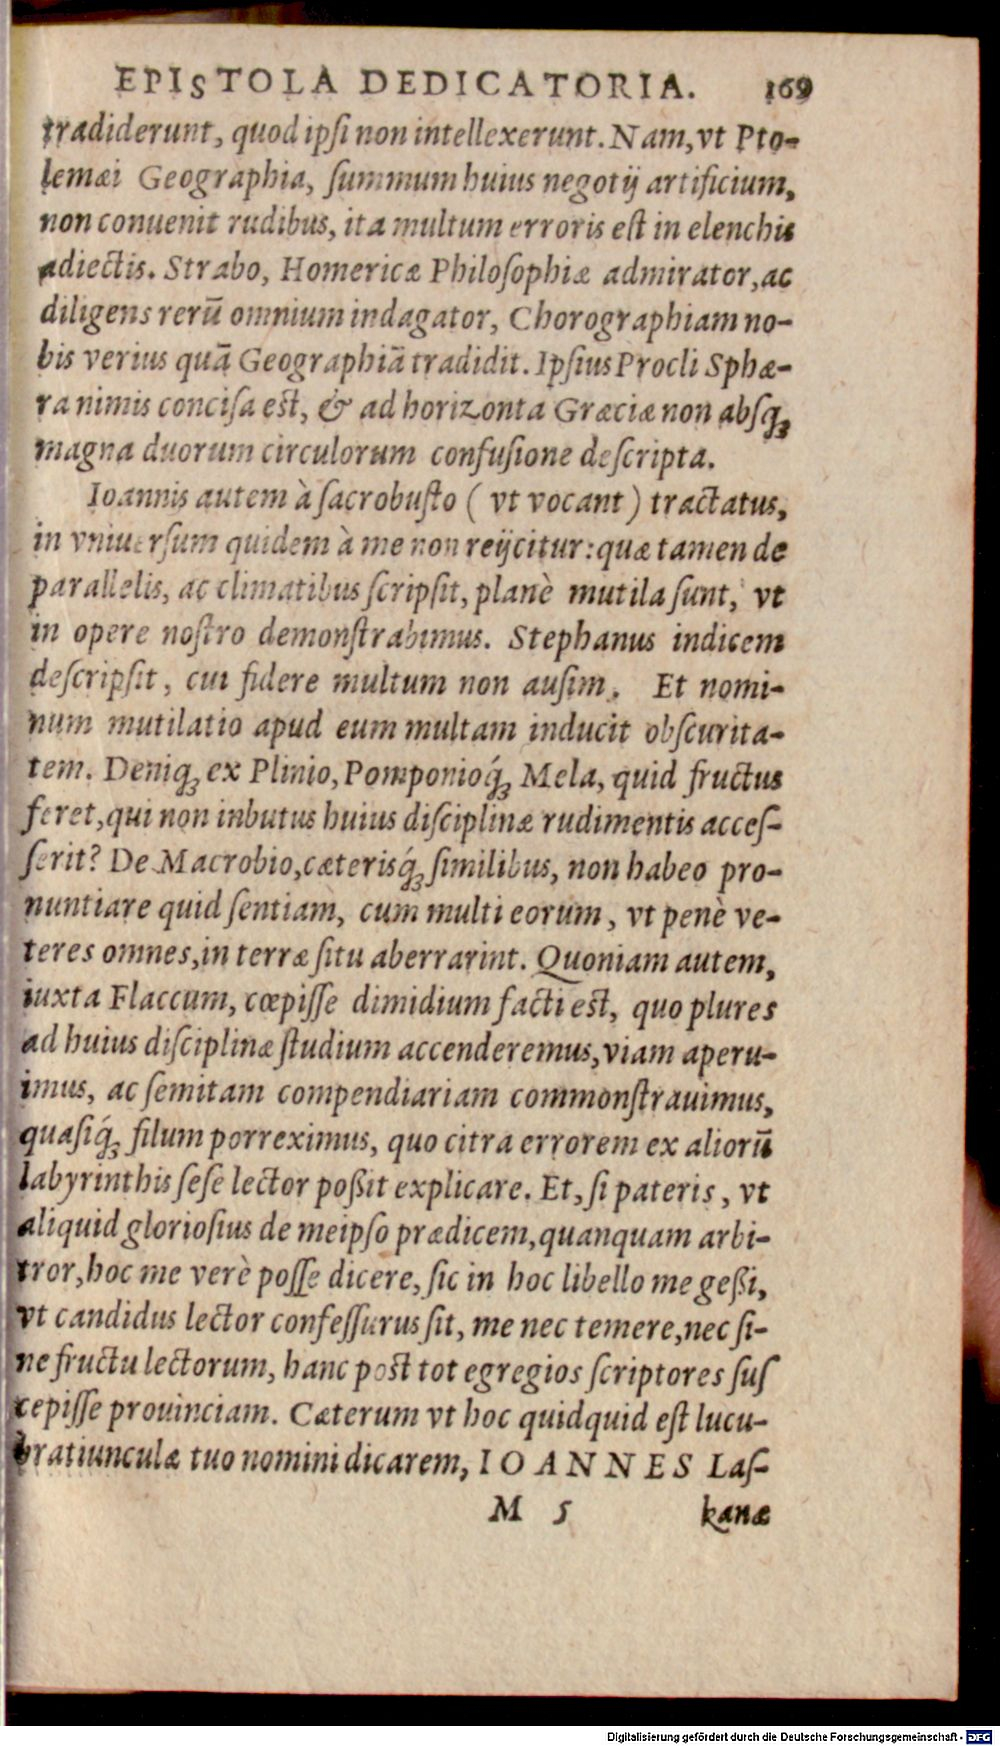 EPISTOLA DEDICATORIA. 169
tradiderunt, quod ipſi non intellexerunt. Nam, vt Pto-
lemæi Geographia, ſummum huius negotij artificium,
non conuenit rudibus, ita multum erroris eſt in elenchis
adiectis. Strabo, Homericæ Philoſophiæ admirator, ac
diligens rerū omnium indagator, Chorographiam no-
bis verius quā Geographiā tradidit. Ipſius Procli Sphæ-
ra nimis conciſa eſt, & ad horizonta Græciæ non abſq́;
magna duorum circulorum confuſione deſcripta.
Ioannis autem à ſacrobuſto ( vt vocant ) tractatus,
in vniuerſum quidem à me non reijcitur: quæ tamen de
parallelis, ac climatibus ſcripſit, planè mutila ſunt, vt
in opere noſtro demonſtrabimus. Stephanus indicem
deſcripſit, cui fidere multum non auſim. Et nomi-
num mutilatio apud eum multam inducit obſcurita-
tem. Deniq; ex Plinio, Pomponioq́; Mela, quid fructus
feret, qui non inbutus huius diſciplinæ rudimentis acceſ-
ſerit? De Macrobio, cæterisq́; ſimilibus, non habeo pro-
nuntiare quid ſentiam, cum multi eorum, vt penè ve-
teres omnes, in terræ ſitu aberrarint. Quoniam autem,
iuxta Flaccum, cœpiſſe dimidium facti eſt, quo plures
ad huius diſciplinæ ſtudium accenderemus, viam aperu-
imus, ac ſemitam compendiariam commonſtrauimus,
quaſiq́; filum porreximus, quo citra errorem ex aliorū
labyrinthis ſeſe lector poßit explicare. Et, ſi pateris, vt
aliquid glorioſius de meipſo prædicem, quanquam arbi-
tror, hoc me verè poſſe dicere, ſic in hoc libello me geßi,
vt candidus lector confeſſurus ſit, me nec temere, nec ſi-
ne fructu lectorum, hanc poſt tot egregios ſcriptores ſuſ
cepiſſe prouinciam. Cæterum vt hoc quidquid eſt lucu-
bratiunculæ tuo nomini dicarem, IOANNES Laſ-
M 5 kanæ
Digitalisierung gefördert durch die Deutsche Forschungsgemeinschaft - DFG